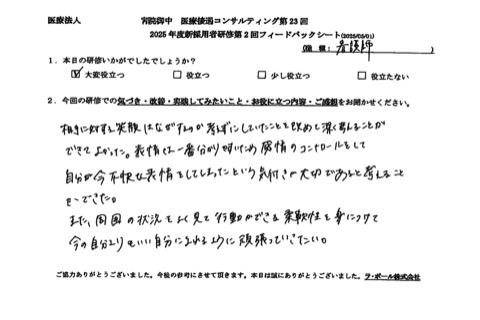 医療法人 宵院御中 医療接遇コンサルティング第23回
2025年度新採用者研修第2回フィードバックシート(2025/05/01)
(職種: 看護師 )
1.本日の研修いかがでしたでしょうか?
☑ 大変役立つ □ 役立つ □ 少し役立つ □ 役立たない
2.今回の研修での気づき・改善・実践してみたいこと・お役に立つ内容・ご感想をお聞かせください。
相手に対する笑顔はなぜするのか考えずにしていたことを改めて深く考えることが
できてよかった。表情は一番分かり易いため感情のコントロールをして
自分が今不快な表情をしてしまったという気付きが大切であると考えること
ができた。
また、周囲の状況をよく見て行動ができる柔軟性を身につけて
今の自分よりもいい自分になれるように頑張っていきたい。
ご協力ありがとうございました。今後の参考にさせて頂きます。本日は誠にありがとうございました。ラ・ポール株式会社